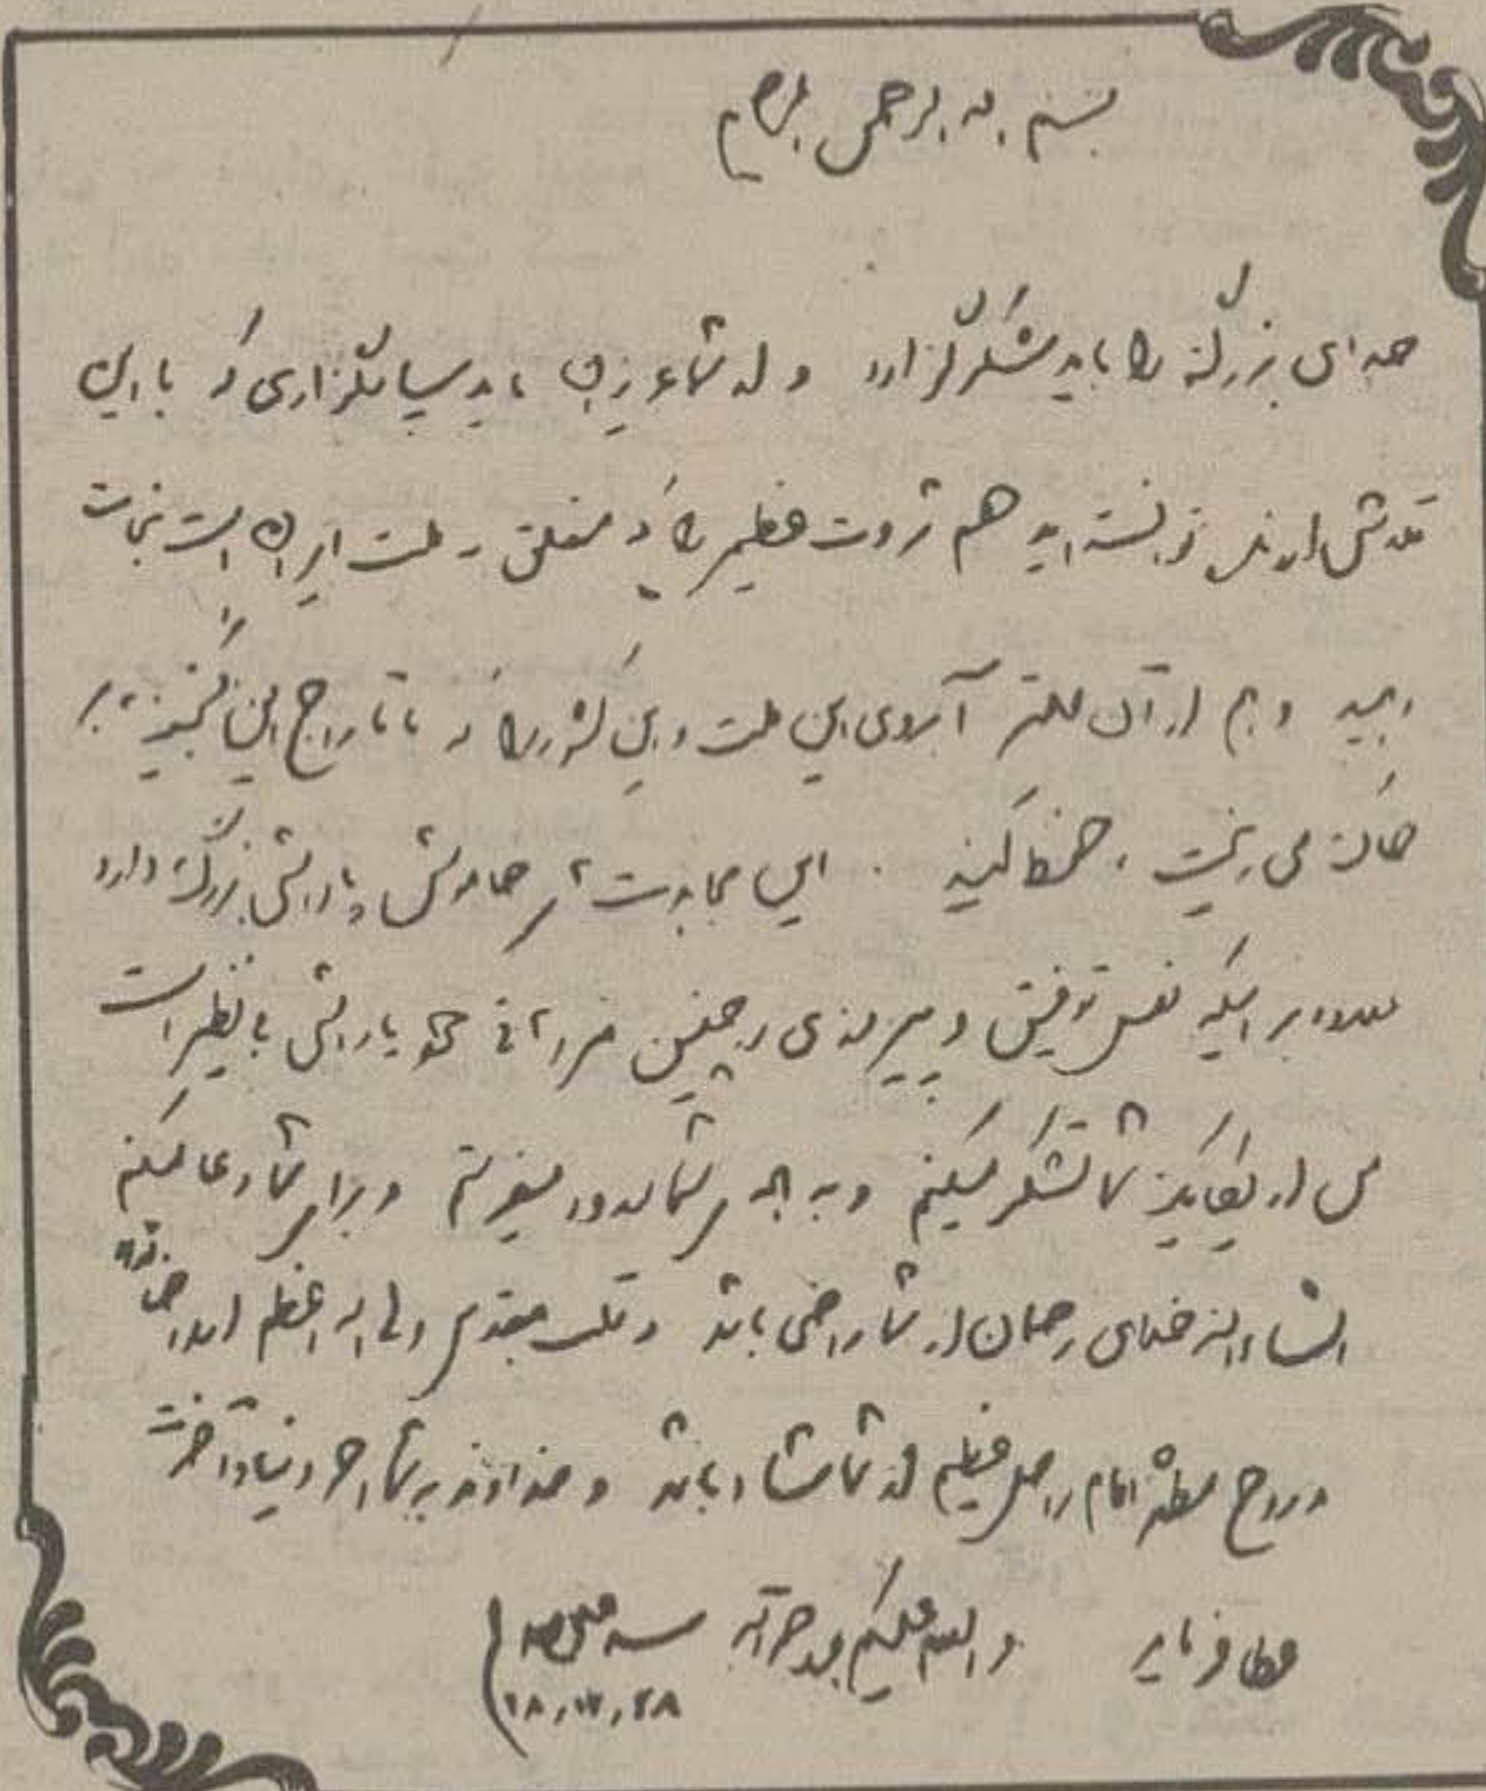 بسم الله الرحمن الرحیم
خدای بزرگ را باید شکرگزارد و از شما عزیزان باید سپاسگزاری که با این
تلاش ارزنده توانسته‌اید هم ثروت عظیمی را که متعلق به ملت ایران است نجات
دهید و هم از آن مهمتر آبروی این ملت و این کشور را که با تاراج این گنجینه بر
خاک می‌ریخت، حفظ کنید. این مجاهدت شما پیش خداوند پاداشی بزرگ دارد
علاوه بر اینکه نفس توفیق و پیروزی در چنین خود پاداشی با نظیر است
من از یکایک شما تشکر میکنم و به همه شما درود میفرستم و برای شما دعا میکنم
انشاءالله خدای رحمان از شما راضی باشد و قلب مقدس ولی الله اعظم ارواحنا فداه
و روح مطهر امام راحل عظیم از شما شاد باشد و خداوند به شما اجر دنیا و آخرت
عطا فرماید والسلام علیکم و رحمة الله سید علی خامنه‌ای